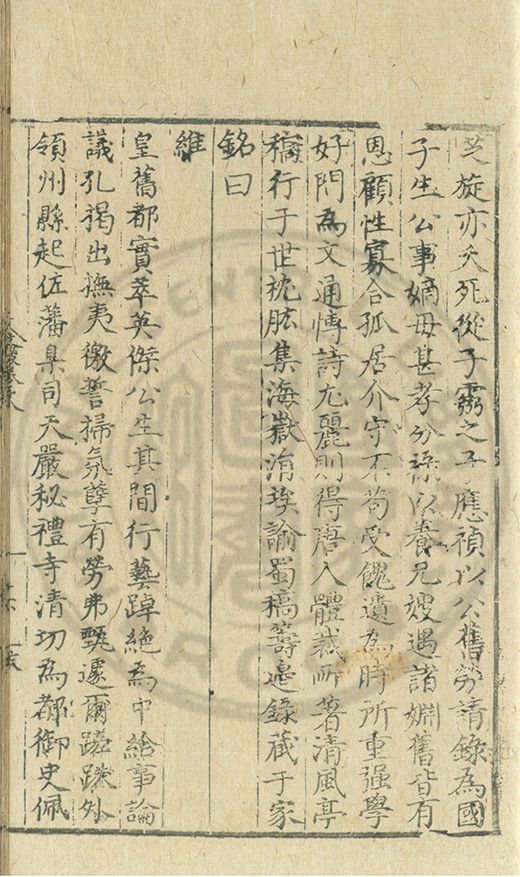 芝旋亦夭死從子霱之子應禎以公舊勞請錄為國
子生公事嫡母甚孝分祿以養兄嫂遇諸姻舊皆有
恩顧性寡合孤居介守不苟受餽遺為時所重强學
好問為文通愽詩尤麗則得唐人體裁所著清風亭
稿行于世枕肱集海嶽涓埃諭蜀稿籌邊錄藏于家
銘曰
維
皇舊都實萃英傑公生其間行藝踔絶為中給事論
議孔揭出撫夷徼誓掃氛孽有勞弗甄遽爾蹉跌外
領州縣起佐藩臬司天嚴秘禮寺清切為都御史佩